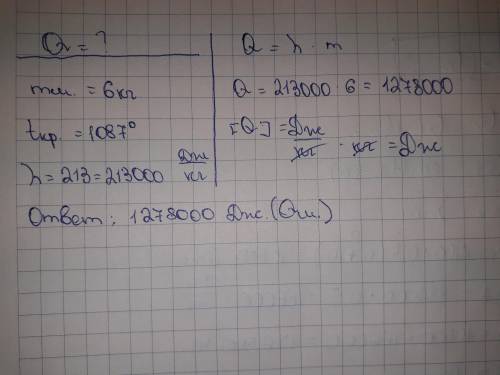 Q = ?
mм. = 6кг
tкр. = 1087°
λ = 213 = 213000 Дж/кг
Q = λ · m
Q = 213000 · 6 = 1278000
[Q] = Дж/кг · кг = Дж
Ответ: 1278000 Дж. (Qм.)